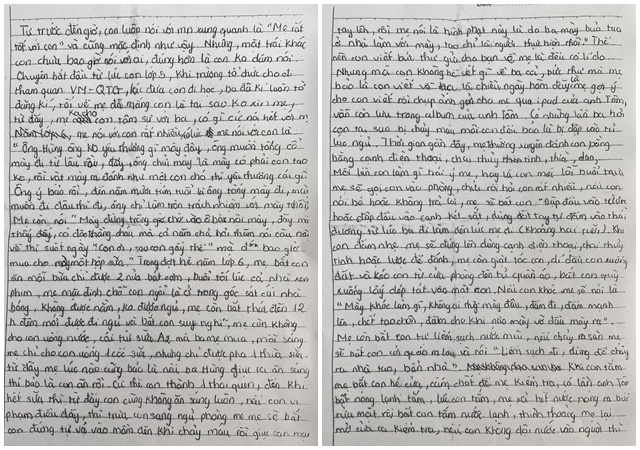 Từ trước đến giờ, con luôn nói với mn xung quanh là "Mẹ rất
tốt với con" và cũng mặc định như vậy. Nhưng, mặt trái khác
con chưa bao giờ nói với ai, đúng hơn là con ko dám nói.
Chuyện bắt đầu từ lúc con lớp 5, khi trường tổ chức cho đi
tham quan VM-QTG, lúc đưa con đi học, ba đã kí luôn tờ
đăng kí, rồi về mẹ đã mắng con là tại sao ko xin mẹ,
từ đấy, mẹ ko cho con tâm sự với ba, có gì cứ nói hết với m
Năm lớp 6, mẹ nói với con rất nhiều, lúc mẹ nói với con là
"Ông Hùng ông ko yêu thương gì mày đây, ông muốn tống cổ
mày đi từ lâu rồi, đấy, ông chửi mày là mày có phải con tao
ko, rồi vất mày ra đánh như một con chó thì yêu thương cái gì
Ông ý bảo rồi, đến năm mười tám tuổi là ông tống mày đi, mày
muốn đi đâu thì đi, ông chỉ làm tròn trách nhiệm với mày thôi
Mẹ còn nói "Mày đừng trông chờ vào ông bà nội mày, đấy m
thấy đấy, có đến thăm cháu mà cả năm chả hỏi thăm nổi câu nói
về thì suốt ngày "con ơi, sao con gầy thế" mà bao giờ
mua cho mày một hộp sữa." Trong đợt hè năm lớp 6, mẹ bắt con
ăn mỗi bữa chỉ được 2 nửa bát cơm, buổi tối lúc cả nhà xem
phim, mẹ mặc định chỗ con ngồi là ở trong góc sát cái nhà
bóng, không được nằm, ko được ngủ, mẹ còn bắt thức đến 12
h đêm mới được đi ngủ và bắt con suy nghĩ, mẹ còn không
cho con uống nước, cái túi sữa Az mà ba mẹ mua, mỗi sáng
mẹ chỉ cho con uống 1 cốc sữa, nhưng chỉ được pha 1 thìa sữa.
từ đấy mẹ lúc nào cũng bảo là nếu ba Hùng giục ra ăn sáng
thì bảo là con ăn rồi. Cứ thế con thành 1 thói quen, đến khi
hết sữa thì từ đấy con cũng không ăn sáng luôn, nếu con vi
phạm điều đấy, thì trưa con sang ngủ phòng mẹ mẹ sẽ bắt
con đứng tự vả vào mồm đến khi chảy máu rồi giục con mau
tay lên, rồi mẹ nói là hình phạt này là do ba mày bảo tao
ở nhà làm với mày, tao chỉ là người thực hiện thôi." Thế
nên con viết bức thư gửi cho bạn về mẹ là đều có lí do
Nhưng mà con không hề viết gì về ba cả, bức thư mà mẹ
bảo là con viết về ba là chiều ngày hôm đấy mẹ gợi ý
cho con viết rồi chụp ảnh gửi cho mẹ qua ipad của anh Tôm,
vẫn còn lưu trong album của anh Tôm. Có những lúc ba hỏi
con tại sao bị chảy máu môi con đều bảo là bị đập vào tủ
lúc ngủ. Thời gian gần đây, mẹ thường xuyên đánh con bằng
bằng cạnh điện thoại, chai thủy tinh, thìa, dao,
Mỗi lần con làm gì trái ý mẹ, hay là con mới lơi buổi trưa
mẹ sẽ gọi con vào phòng, chửi rồi hỏi con rất nhiều, nếu con
nói bé hoặc không trả lời, mẹ sẽ bắt con. "Đập đầu vào tường
hoặc đập đầu vào cạnh két sắt, dùng đốt tay tự đấm vào thái
dương từ lúc ba đi làm đến lúc mẹ đi (khoảng hai tiếng). Khi
con đấm nhẹ, mẹ sẽ lên dùng cạnh điện thoại, chai thủy
tinh hoặc lược để đánh, mẹ còn giật tóc con, dí đầu con xuống
đất và kéo con từ cửa phòng đến tủ quần áo, bắt con quỳ
xuống lấy dép tát vào mặt con. Nếu con khóc mẹ sẽ nói là
"Mày khóc làm gì, không ai thương mày đâu, đấm đi, đấm mạnh
lên, chết tao chịu, đấm cho khi nào mày vỡ đầu mày ra".
Mẹ còn bắt con tự liếm sạch nước mũi, nếu chảy ra sàn mẹ
sẽ bắt con cúi gập đầu lau và nói "Liếm sạch đi, đừng để chảy
ra nhà tao, bẩn nhà". Khi con tắm
mẹ bắt con hé cửa, cấm chốt để mẹ kiểm tra, có lần anh Tôm
bật nóng lạnh tắm, lúc con tắm, mẹ xả hết nước nóng ra bồn
rửa mặt rồi bắt con tắm nước lạnh, thỉnh thoảng mẹ lại
mở cửa ra kiểm tra, nếu con không dội nước vào người thì